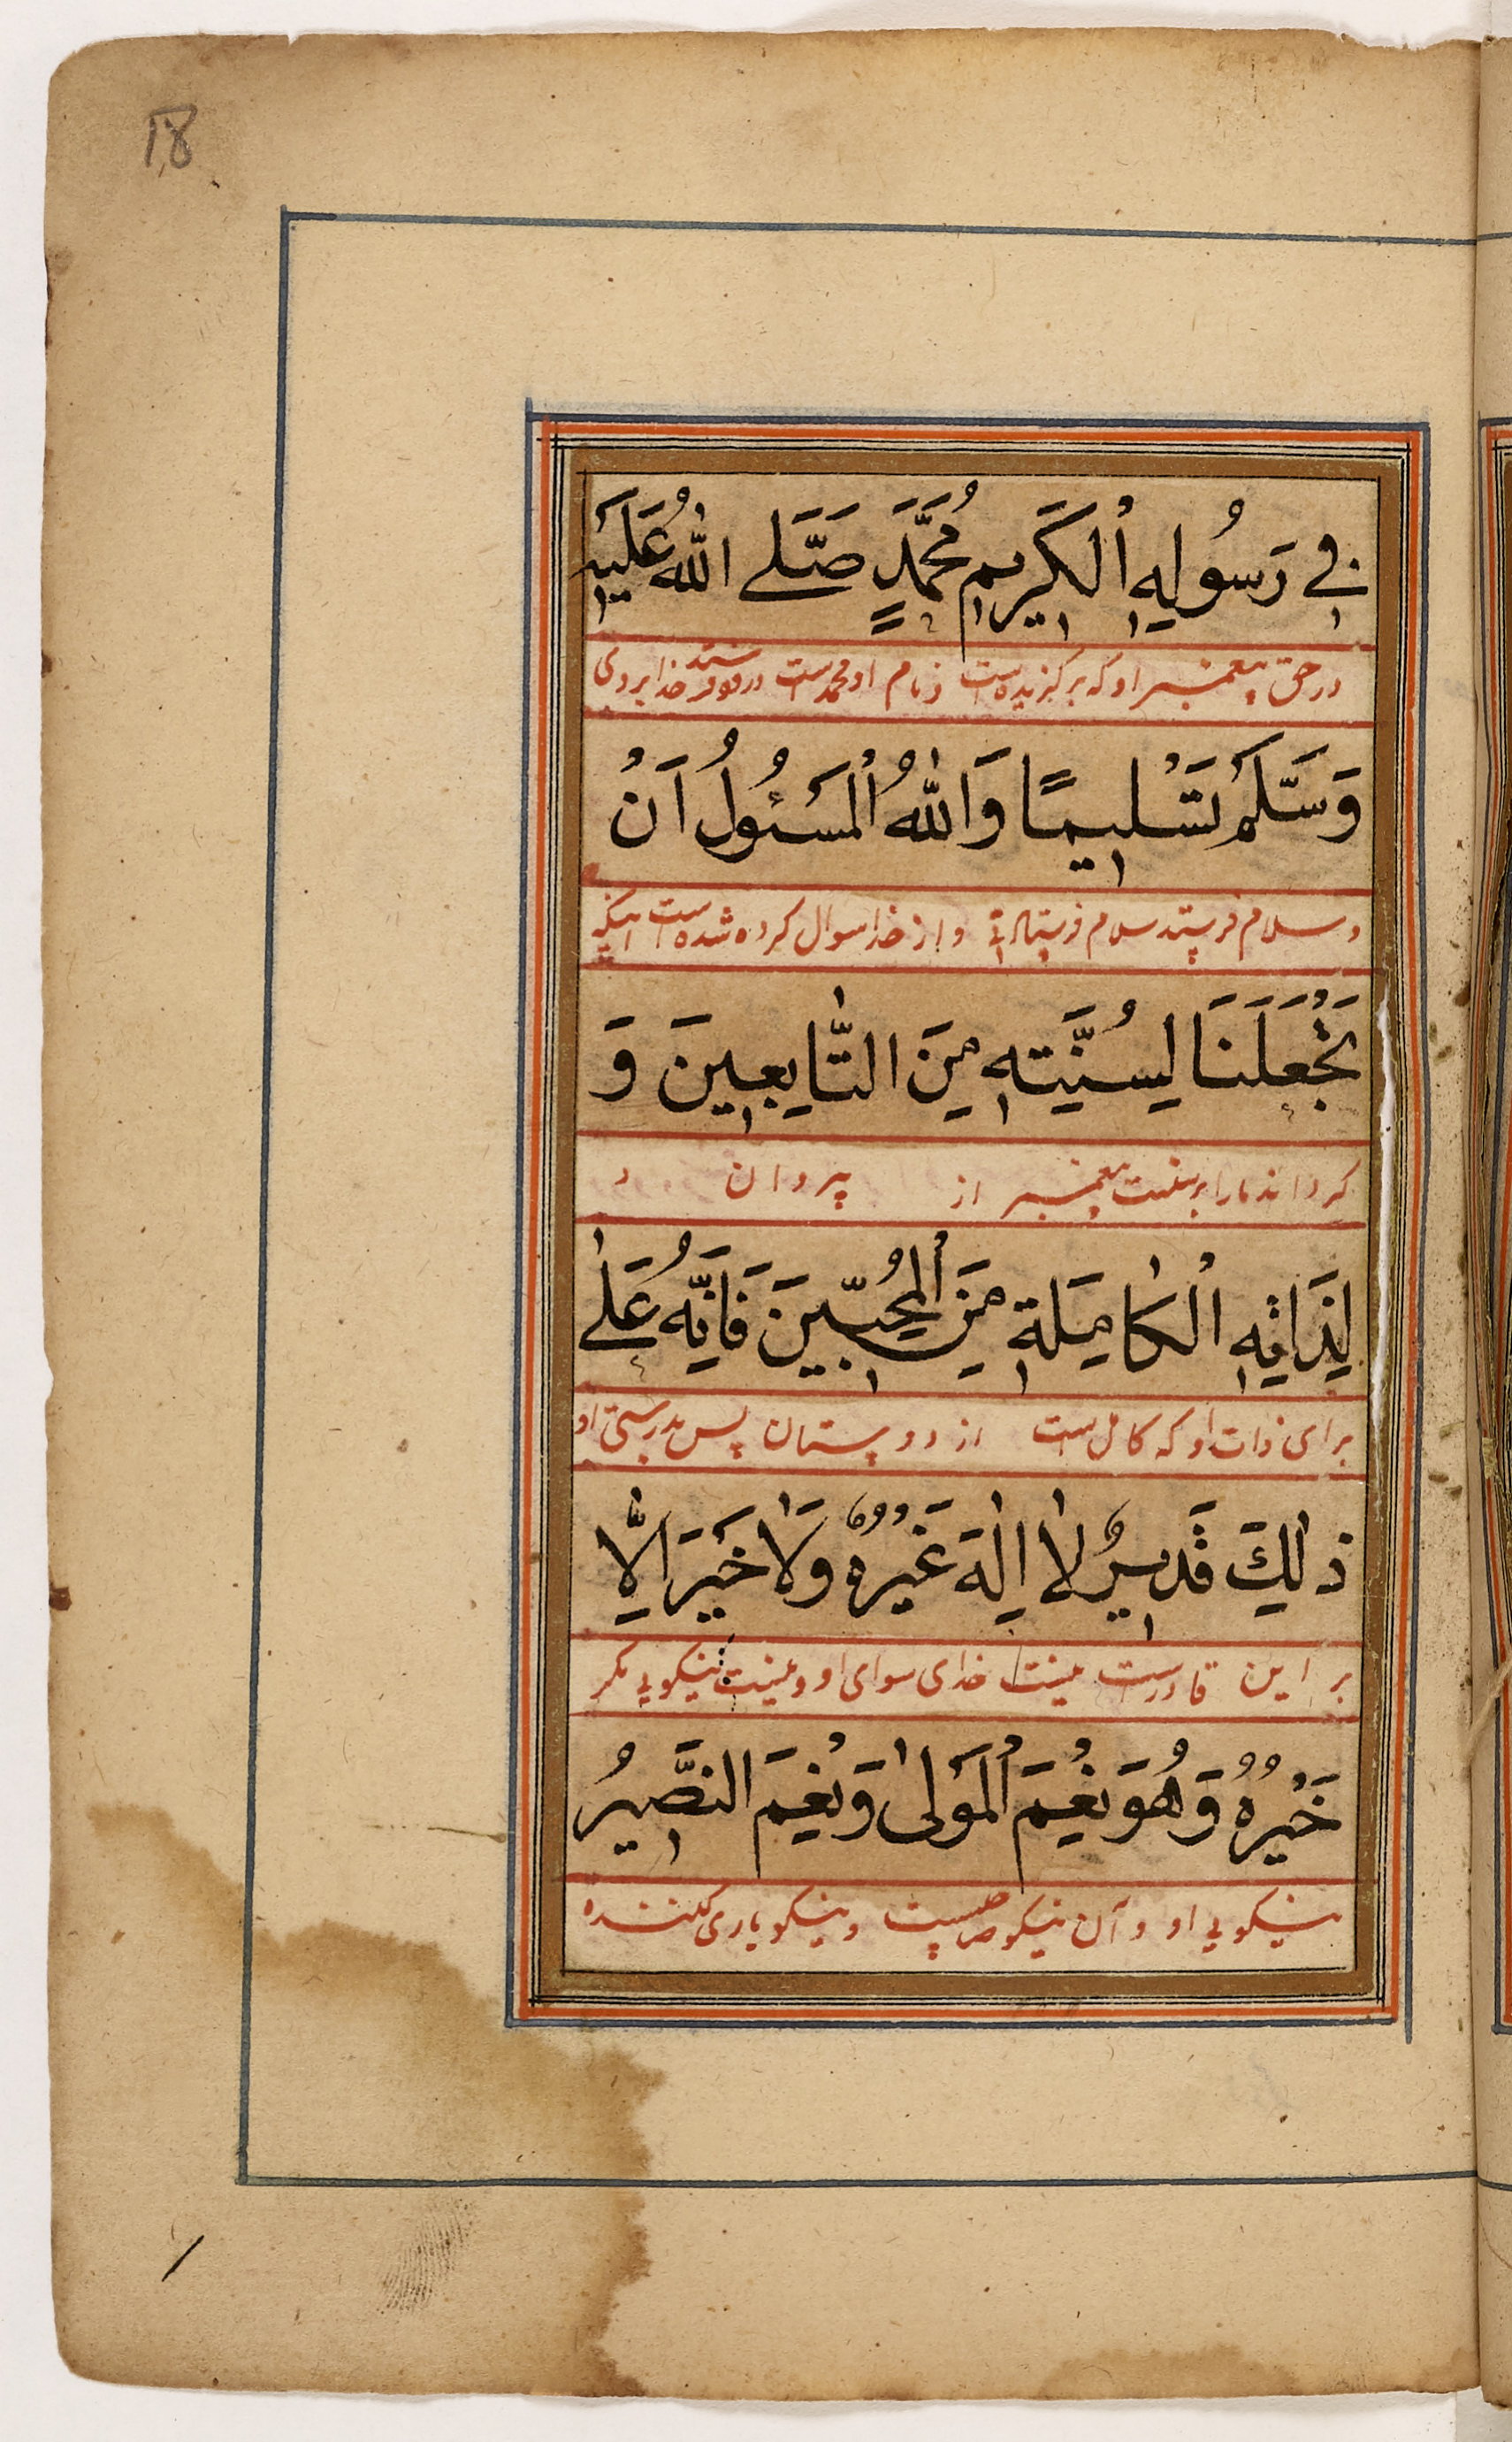 18
فِي رَسُولِهِ الْكَرِيمِ مُحَمَّدٍ صَلَّے اللّٰهُ عَلَيْهِ
در حق پیغمبر او که برگزیده است و نام او محمد است درود فرستد خدا بر وی
وَسَلَّمَ تَسْلِيمًا وَاللّٰهُ الْمَسْئُولُ اَنْ
و سلام فرستد سلام فرستادنی و از خدا سوال کرده شده است اینکه
يَّجْعَلَنَا لِسُنَّتِهِ مِنَ التَّابِعِينَ وَ
گرداند ما را بر سنت پیغمبر از پیروان و
لِذَاتِهِ الْكَامِلَةِ مِنَ الْمُحِبِّينَ فَاِنَّهُ عَلٰى
برای ذات او که کامل است از دوستان پس بدرستی او
ذٰلِكَ قَدِيرٌ لَا اِلٰهَ غَيْرُهُ وَلَا خَيْرَ اِلَّا
بر این قادرست نیست خدای سوای او و نیست نیکویی مگر
خَيْرُهُ وَهُوَ نِعْمَ الْمَوْلٰى وَنِعْمَ النَّصِيرُ
نیکویی او و آن نیکو و نیکو یاری کننده